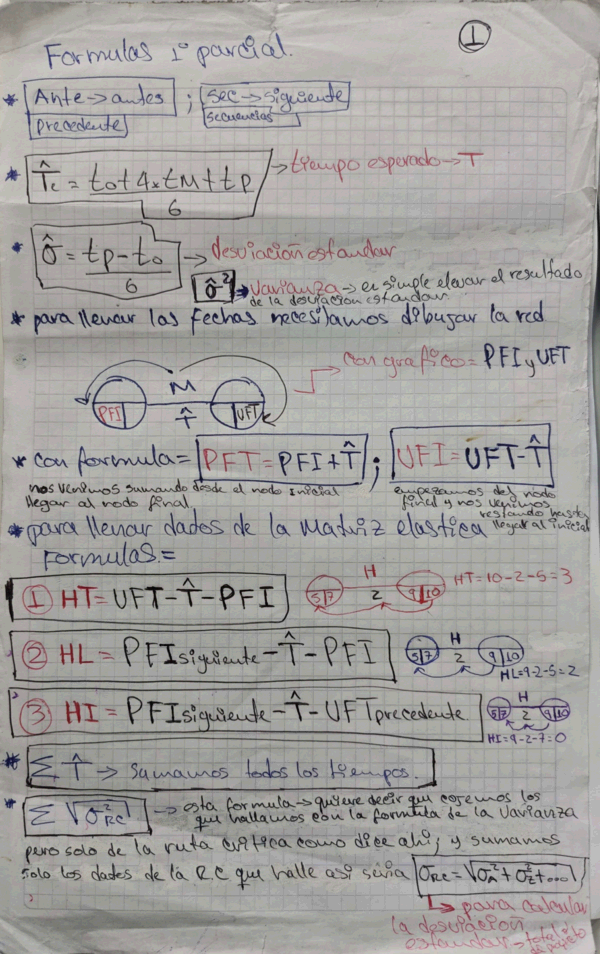 ①
Formulas 1° parcial.
* Ante → antes ; sec → siguiente
precedente secuencias
* T̂c = to + 4 x tM + tp / 6 → tiempo esperado → T
* σ̂ = tp - to / 6 → desviación estandar
σ̂² → Varianza → es simple elevar el resultado
de la desviacion estandar.
* para llenar las fechas necesitamos dibujar la red
con grafico = PFI y UFT
M
PFI T̂ UFT
* con formula = PFT = PFI + T̂ ; UFI = UFT - T̂
nos venimos sumando desde el nodo inicial
llegar al nodo final.
empezamos del nodo
final y nos venimos
restando hasta
llegar al inicial
* para llenar datos de la Matriz elastica
Formulas =
① HT = UFT - T̂ - PFI
H
5|7 2 9|10
HT = 10 - 2 - 5 = 3
② HL = PFI siguiente - T̂ - PFI
H
5|7 2 9|10
HL = 9 - 2 - 5 = 2
③ HI = PFI siguiente - T̂ - UFT precedente
H
5|7 2 9|10
HI = 9 - 2 - 7 = 0
* Σ T̂ → Sumamos todos los tiempos.
* Σ √σ²RC → esta formula → quiere decir que cojemos los
que hallamos con la formula de la Varianza
pero solo de la ruta critica como dice ahi, y sumamos
solo los datos de la R.C que halle asi seria σRC = √σ²A + σ²E + ...
→ para calcular
la desviación
estandar → total